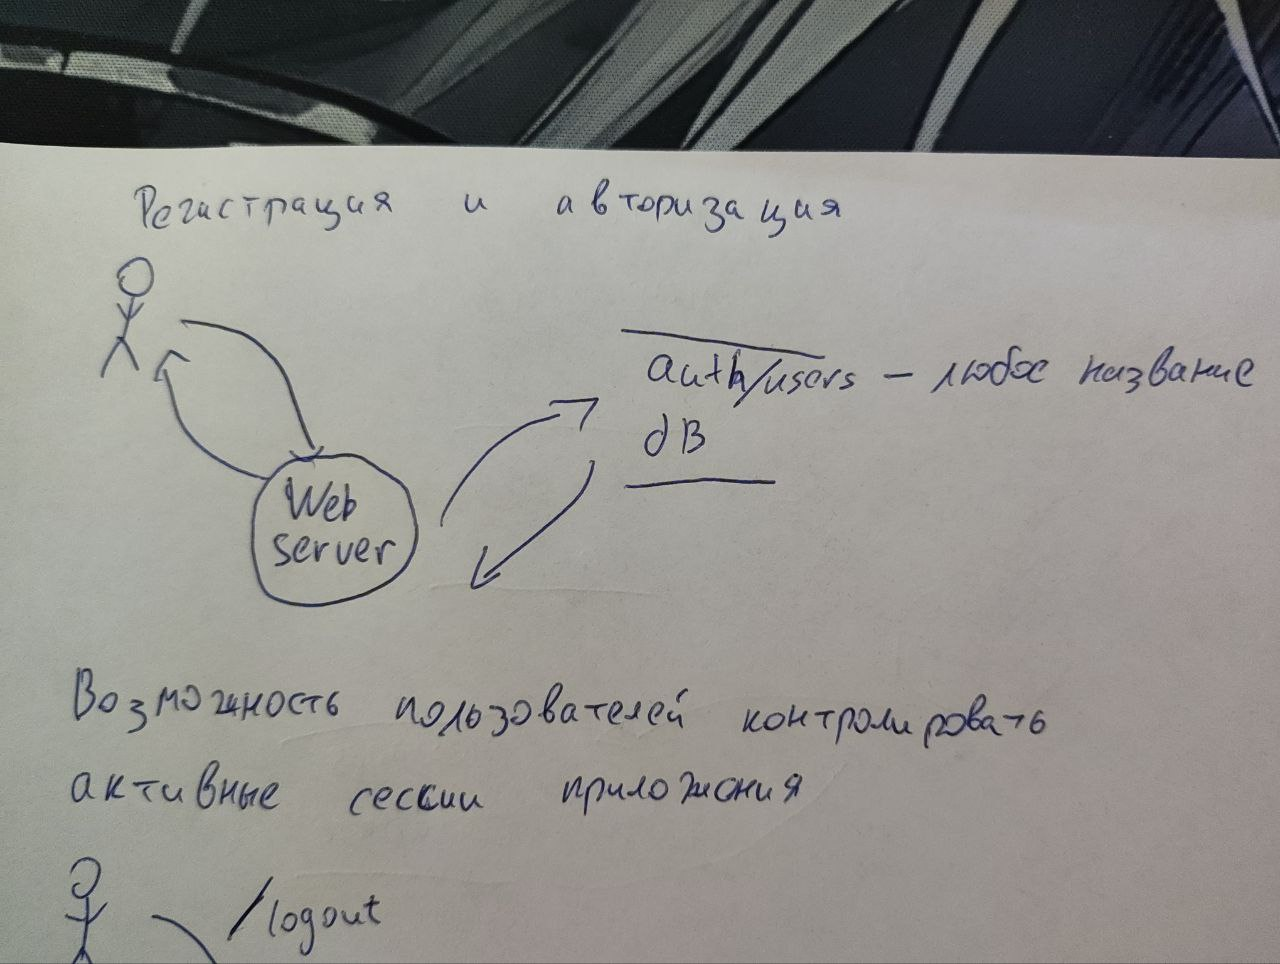 Регистрация и авторизация
auth/users – любое название
dB
Web
server
Возможность пользователей контролировать
активные сессии приложения
/logout